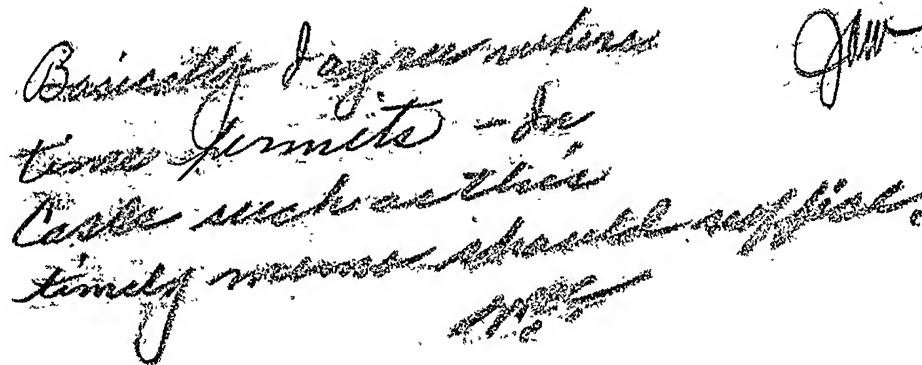 Basically I agree where
time permits - In
Cases such as this
timely memo should suffice.